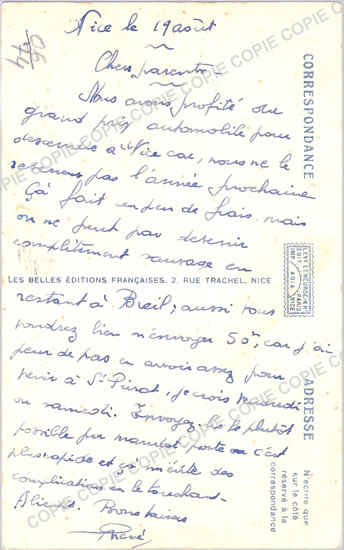 Nice le 19 août
Chers parents
Nous avons profité du
grand prix automobile pour
descendre à Nice car, nous ne le
reverrons pas l'année prochaine
Ça fait un peu de frais, mais
on ne peut pas devenir
complètement sauvage en
restant à Breil ; aussi vous
voudrez bien m'envoyer 50 car j'ai
peur de pas en avoir assez pour
venir à St je crois vendredi
ou samedi. Envoyez les le plutôt
possible par mandat poste c'est
plus rapide et ça évite des
complications en le touchant
Bons baisers
René
CORRESPONDANCE
LES BELLES ÉDITIONS FRANÇAISES. 2, RUE TRACHEL, NICE
LEVY ET NEURDEIN Rs
PARIS
NICE
ADRESSE
N'écrire que
sur le côté
réservé à la
correspondance
COPIE COPIE COPIE COPIE COPIE COPIE